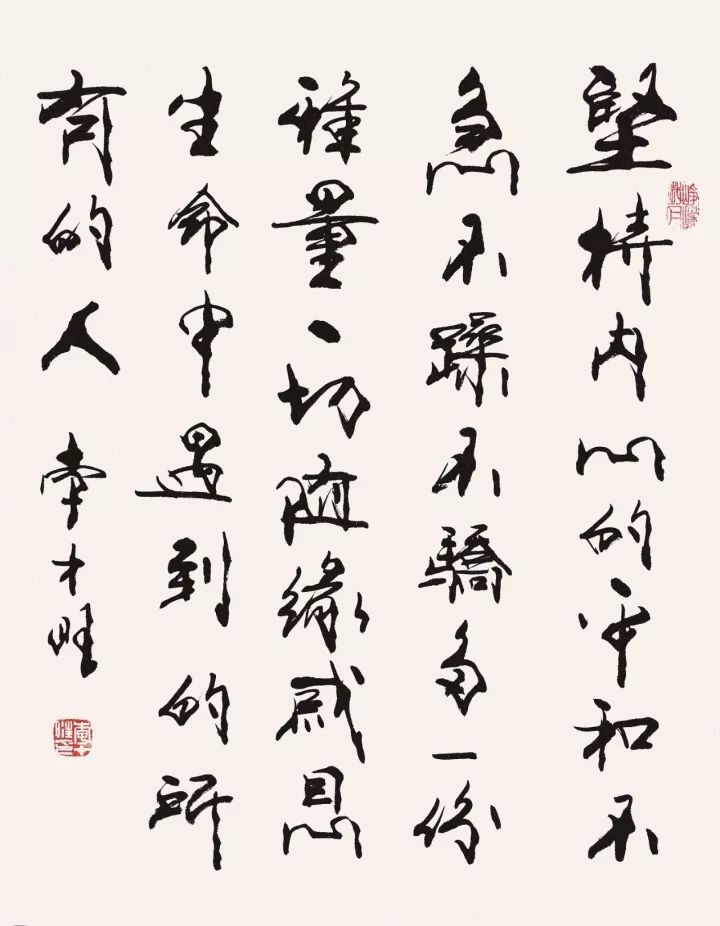 堅持内心的平和不
急不躁不驕多一份
雅量一切随緣感恩
生命中遇到的所
有的人 李才旺